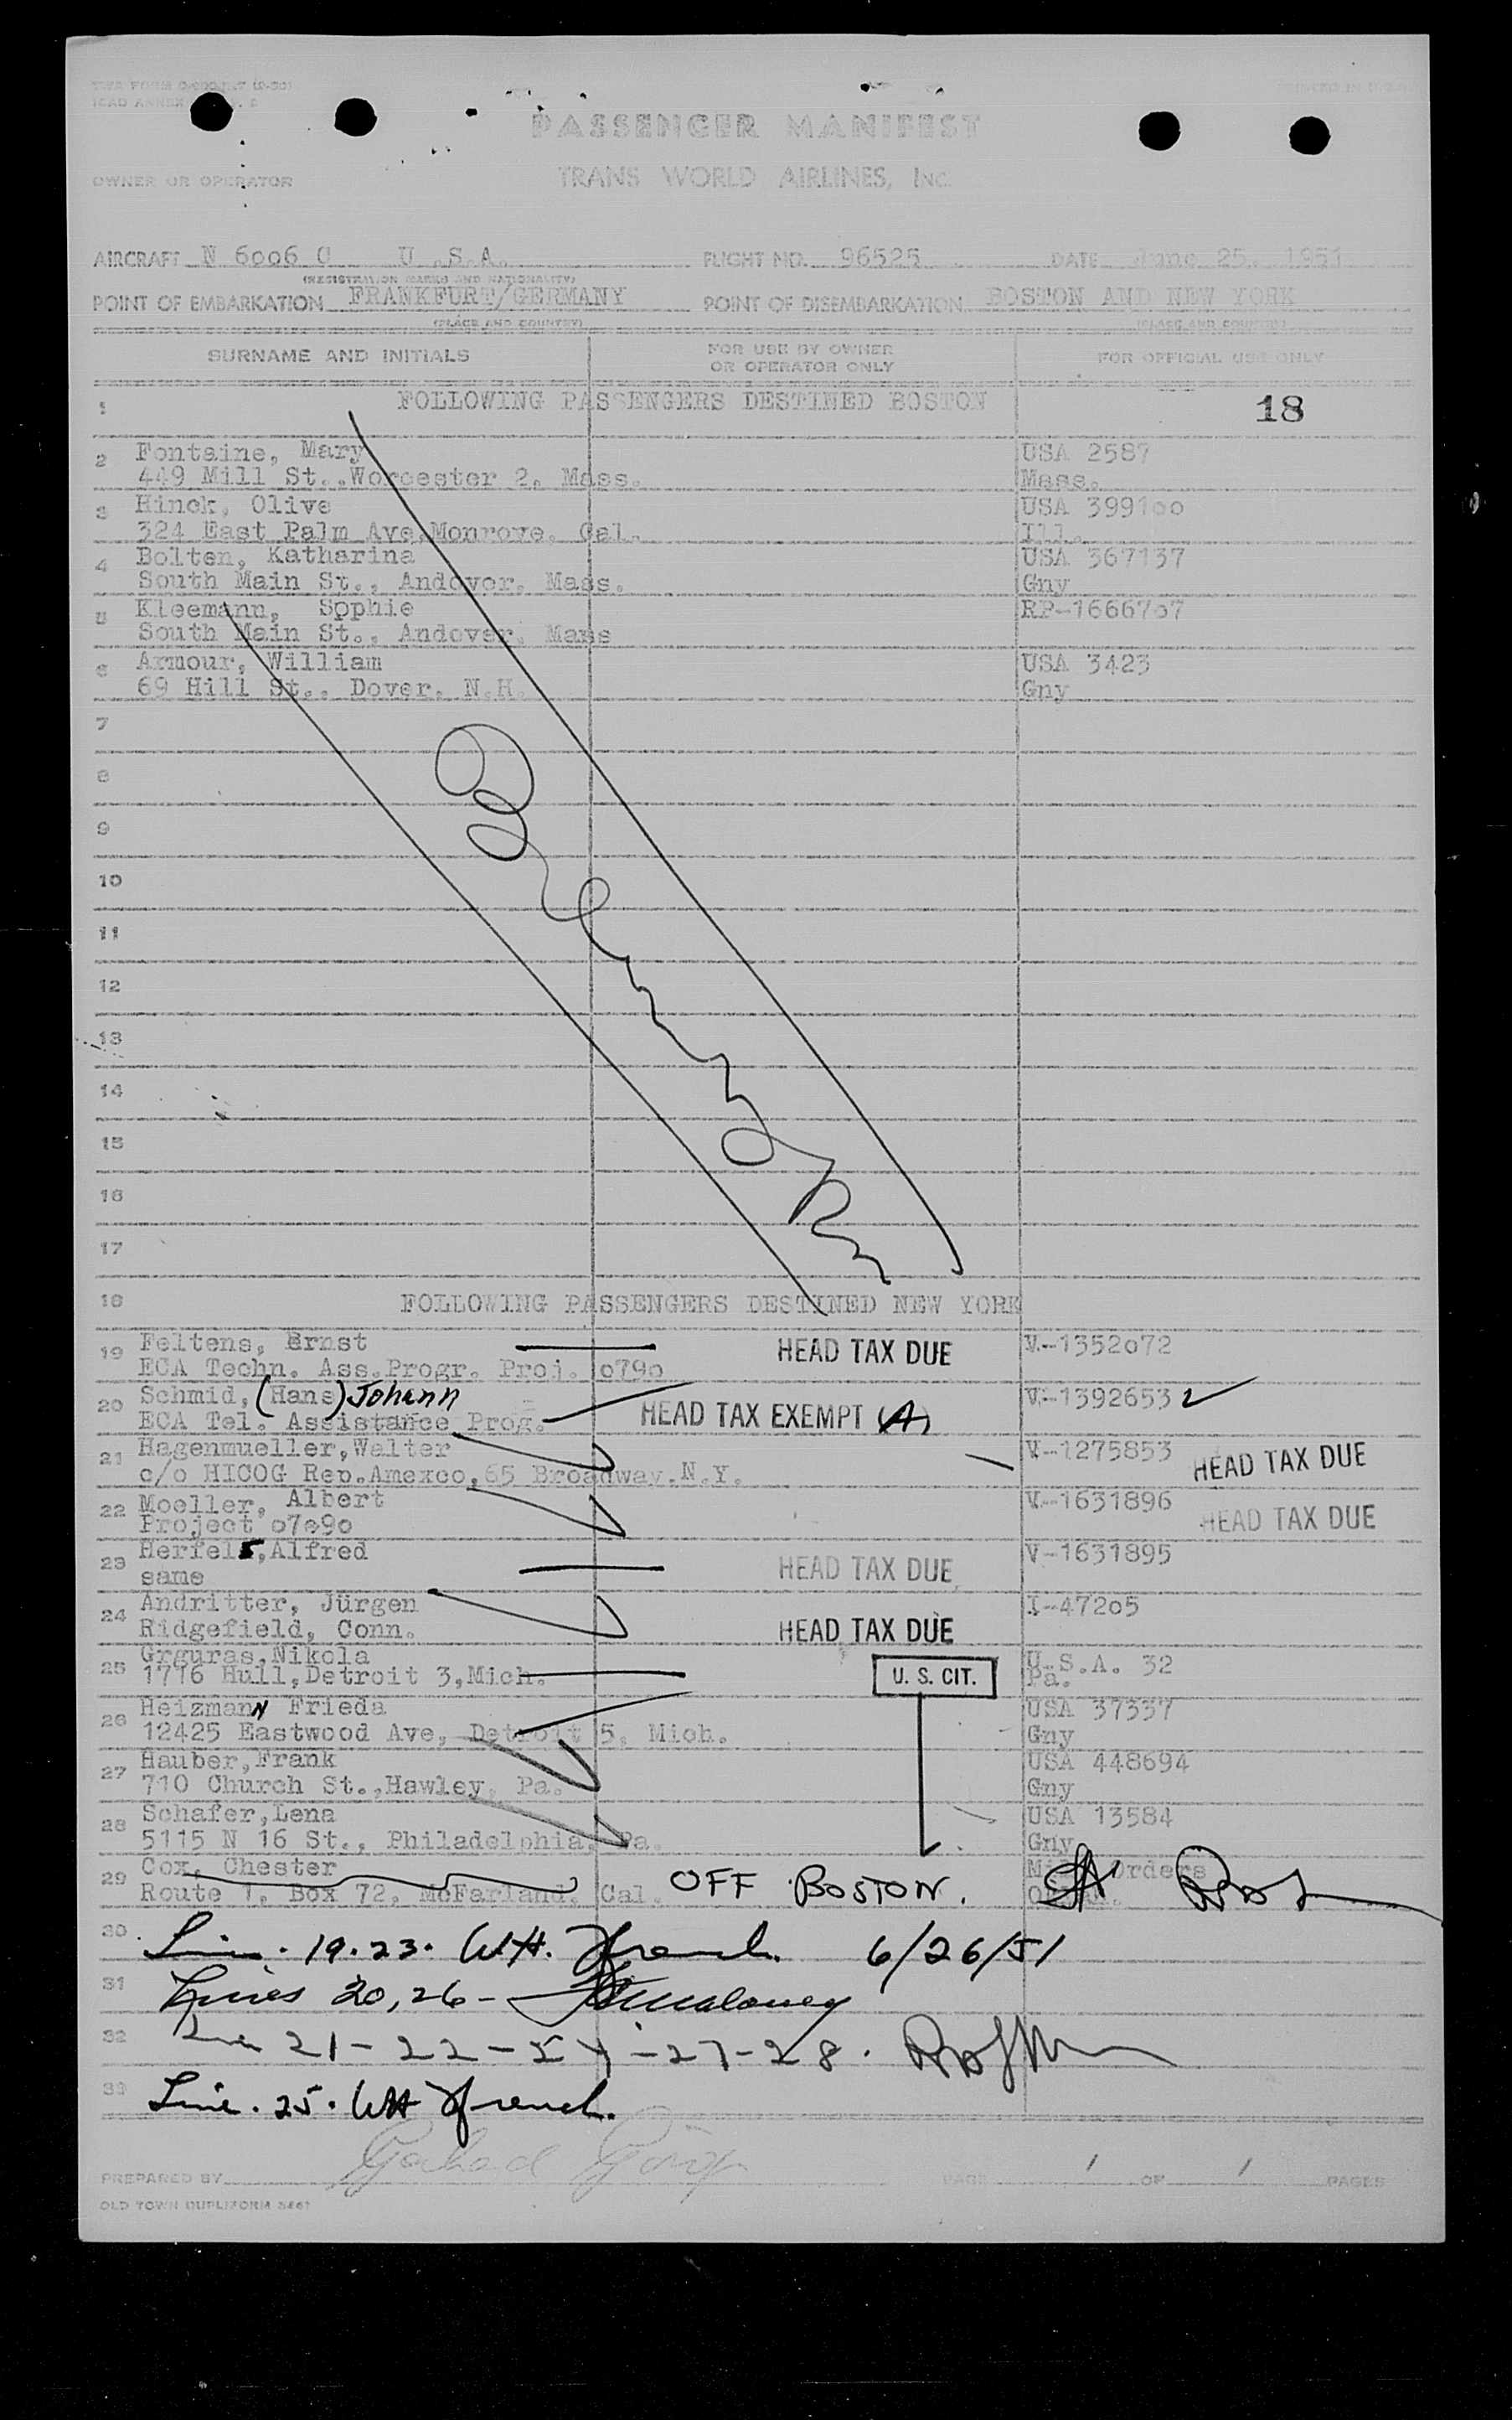 PASSENGER MANIFEST
OWNER OR OPERATOR TRANS WORLD AIRLINES, INC.
AIRCRAFT N 6006 C U.S.A. FLIGHT NO. 96525 DATE June 25. 1951
(REGISTRATION MARKS AND NATIONALITY)
POINT OF EMBARKATION FRANKFURT/GERMANY POINT OF DISEMBARKATION BOSTON AND NEW YORK
(PLACE AND COUNTRY) (PLACE AND COUNTRY)
SURNAME AND INITIALS FOR USE BY OWNER OR OPERATOR ONLY FOR OFFICIAL USE ONLY
1 FOLLOWING PASSENGERS DESTINED BOSTON 18
2 Fontaine, Mary USA 2587
449 Mill St..Worcester 2. Mass. Mass.
3 Hinck, Olive USA 3991oo
324 East Palm Ave.Monrove. Cal. Ill.
4 Bolten, Katharina USA 367137
South Main St., Andover. Mass. Gny
5 Kleemann, Sophie RP-16667o7
South Main St., Andover. Mass
6 Armour, William USA 3423
69 Hill St.. Dover. N.H. Gny
7
8
9
10
11
12
13
14
15
16
17
18 FOLLOWING PASSENGERS DESTINED NEW YORK
19 Feltens, Ernst HEAD TAX DUE V-1352o72
ECA Techn. Ass.Progr. Proj. o79o
20 Schmid, (Hans) Johann V-1392653
ECA Tel. Assistance Prog. HEAD TAX EXEMPT (A)
21 Hagenmueller,Walter V-1275853 HEAD TAX DUE
c/o HICOG Rep.Amexco,65 Broadway.N.Y.
22 Moeller, Albert V-1631896 HEAD TAX DUE
Project o7e9o
23 Herfels,Alfred HEAD TAX DUE V-1631895
same
24 Andritter, Jürgen I-472o5
Ridgefield, Conn. HEAD TAX DUE
25 Grguras,Nikola U.S.A. 32
1716 Hull,Detroit 3,Mich. U. S. CIT. Pa.
26 Heizmann Frieda USA 37337
12425 Eastwood Ave, Detroit 5, Mich. Gny
27 Hauber,Frank USA 448694
710 Church St.,Hawley, Pa. Gny
28 Schafer,Lena USA 13584
5115 N 16 St., Philadelphia, Pa. Gny
29 Cox, Chester Orders
Route 1, Box 72, McFarland, Cal. OFF BOSTON.
30 Line. 19.23. W.H. French 6/26/51
31 Lines 20,26-
32 21-22-24-27-28.
33 Line. 25. WH French.
PREPARED BY PAGE 1 OF 1 PAGES
OLD TOWN DUPLIFORM